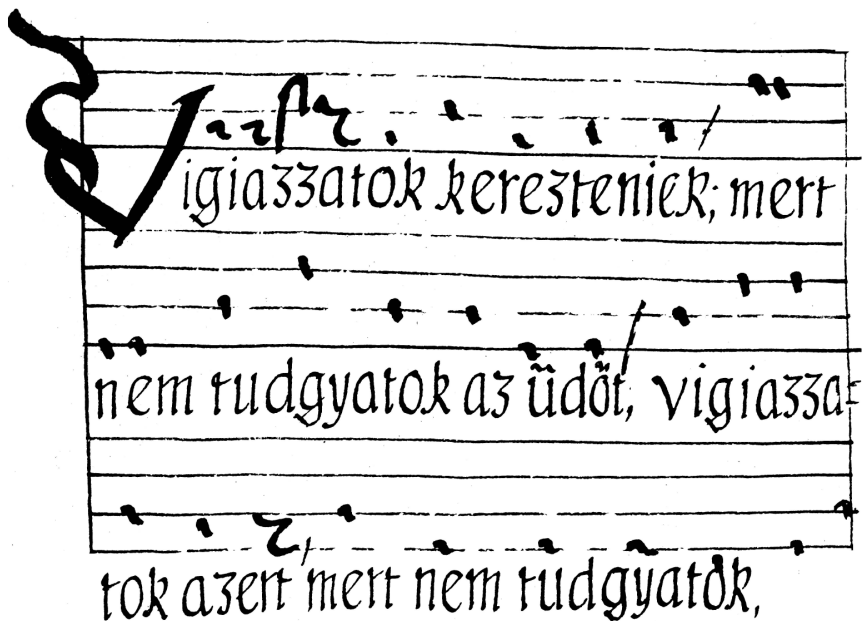 Vigiazzatok kerezteniek; mert
nem tudgyatok az üdőt, vigiazza=
tok azert mert nem tudgyatok,